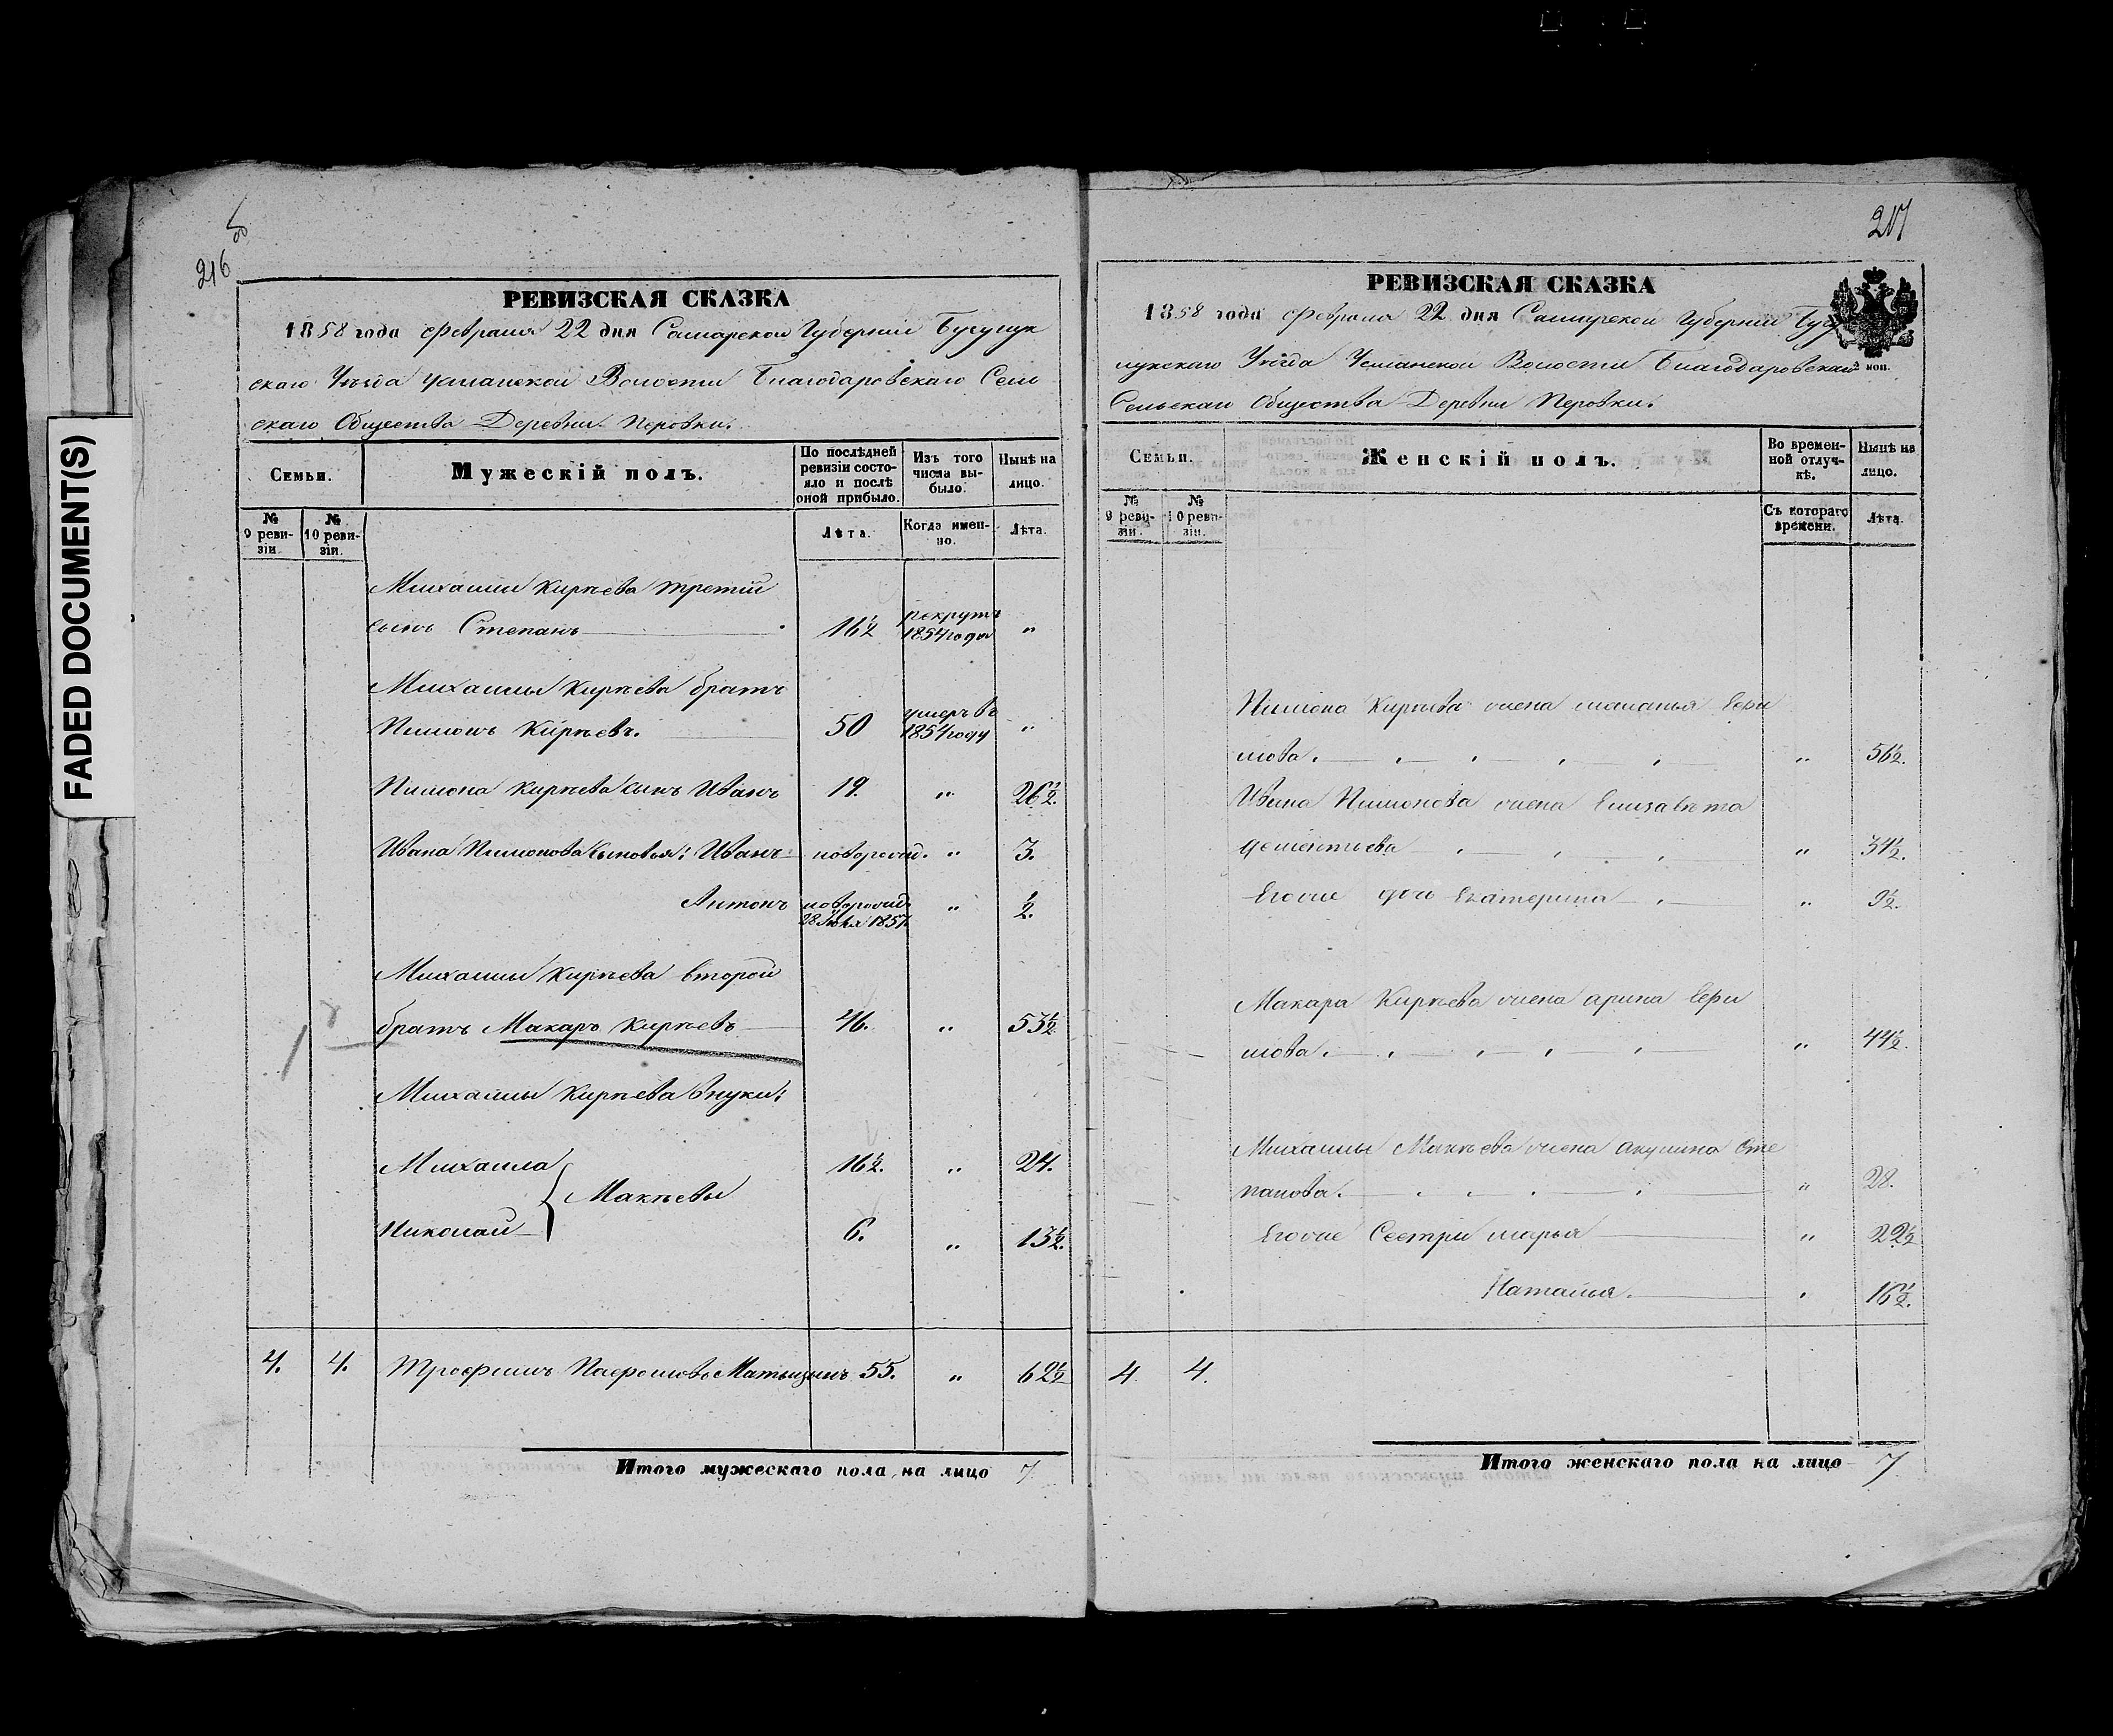 FADED DOCUMENT(S)
216
РЕВИЗСКАЯ СКАЗКА
1858 года Февраля 22 дня Самарской Губерніи Бузулук
скаго Уѣзда Усманской Волости Благодаровскаго Сель
скаго Общества Деревни Перовки.
Семьи. Мужескій полъ. По послѣдней ревизіи состояло и послѣ оной прибыло. Изъ того числа выбыло. Нынѣ на лицо.
№ 9 ревизіи. № 10 ревизіи. Лѣта. Когда именно. Лѣта.
Михайлы Кирѣева третій
сынъ Степанъ 16½ рекрутъ 1854 года "
Михайлы Кирѣева братъ
Пимонъ Кирѣевъ. 50 умеръ въ 1854 году "
Пимона Кирѣева сынъ Иванъ 19. " 26½.
Ивана Пимонова сыновья: Иванъ новорожд. " 3.
Антонъ новорожд. 28 1857. " ½.
Михайлы Кирѣева второй
братъ Макаръ Кирѣевъ 46. " 53½
Михайлы Кирѣева внуки:
Михайла 16½. " 24.
Макѣевы
Николай 6. " 13½.
4. 4. Трофимъ Пафомовъ 55. " 62½
Итого мужескаго пола на лицо 7
217
РЕВИЗСКАЯ СКАЗКА
1858 года Февраля 22 дня Самарской Губерніи Бузу
лукскаго Уѣзда Усманской Волости Благодаровскаго
2 коп.
Сельскаго Общества Деревни Перовки.
Семьи. Женскій полъ. Во временной отлучкѣ. Нынѣ на лицо.
№ 9 ревизіи. № 10 ревизіи. Съ котораго времени. Лѣта.
Пимона Кирѣева жена маланья Ефи
мова. " 56½.
Ивана Пимонова жена Елизавѣта
дементьева " 31½.
Егоже дочь Екатерина " 9½.
Макара Кирѣева жена арина Ефи
мова. " 44½.
Михайлы Макѣева жена акулина Сте
панова. " 28.
Егоже Сестры марья " 22½
Наталья. " 16½.
4 4.
Итого женскаго пола на лицо 7